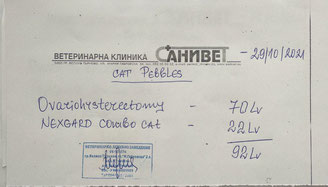 ВЕТЕРИНАРНА КЛИНИКА САНИВЕТ - 29/10/2021
CAT PEBBLES
Ovariohysterectomy - 70 Lv
NEXGARD COMBO CAT - 22 Lv
92 Lv